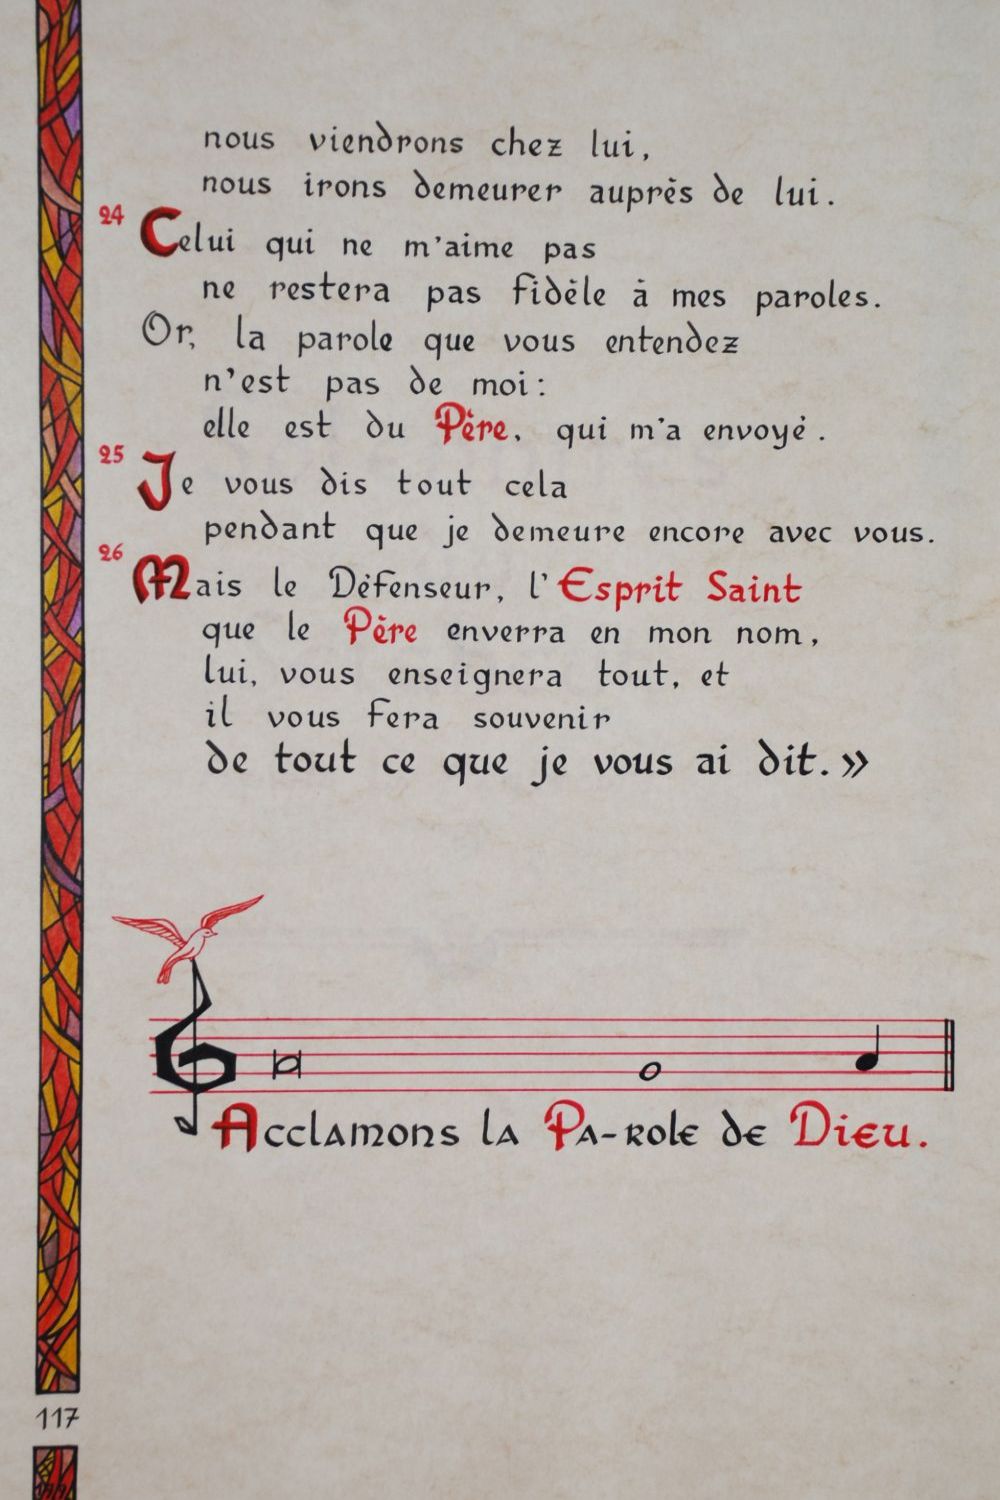 nous viendrons chez lui,
nous irons demeurer auprès de lui.
24
Celui qui ne m'aime pas
ne restera pas fidèle à mes paroles.
Or, la parole que vous entendez
n'est pas de moi :
elle est du Père, qui m'a envoyé.
25
Je vous dis tout cela
pendant que je demeure encore avec vous.
26
Mais le Défenseur, l'Esprit Saint
que le Père enverra en mon nom,
lui, vous enseignera tout, et
il vous fera souvenir
de tout ce que je vous ai dit. »
Acclamons la Pa-role de Dieu.
117